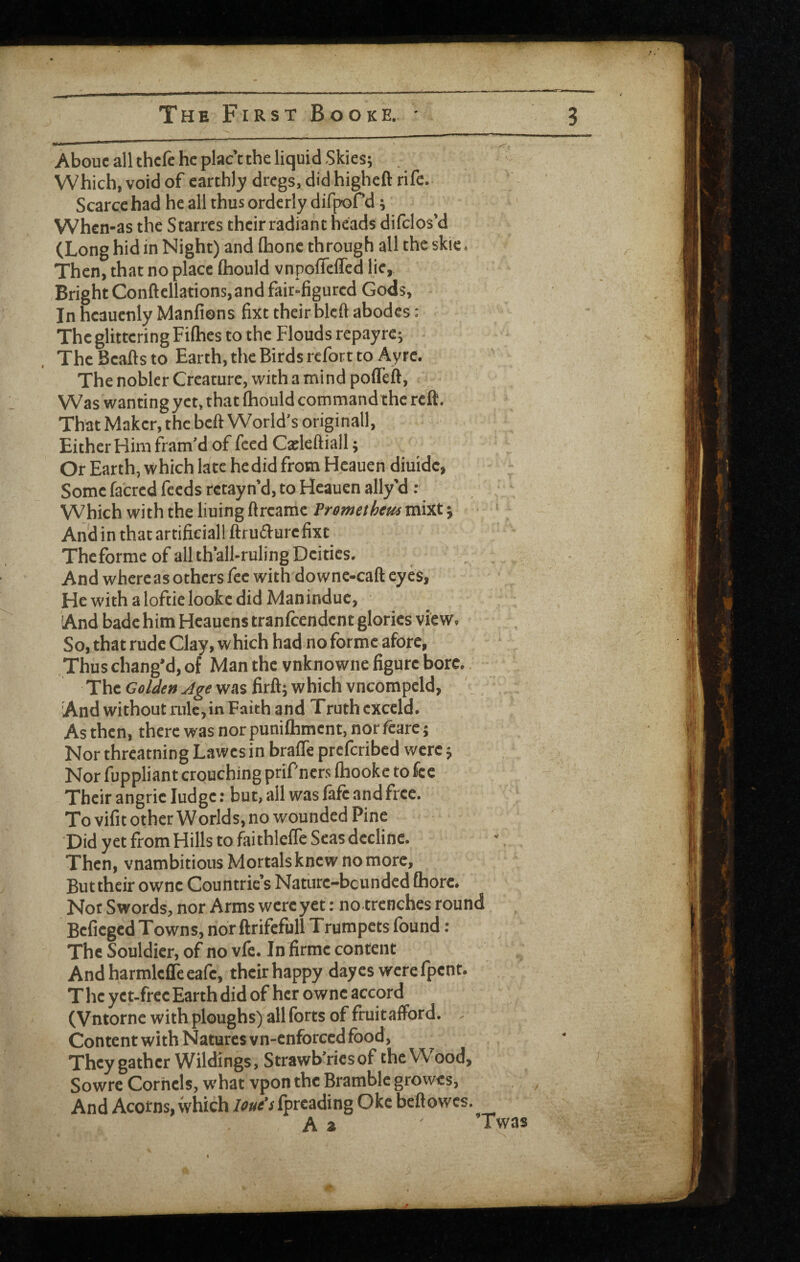 THE FIRST BOOKE. 3
Aboue all theſe he plac't the liquid Skies;
Which, void of earthly dregs, did higheſt riſe.
Scarce had he all thus orderly diſpoſ'd;
When-as the Starres their radiant heads diſclos'd
(Long hid in Night) and ſhone through all the skie.
Then, that no place ſhould vnpoſſeſſed lie,
Bright Conſtellations, and fair-figured Gods,
In heauenly Manſions fixt their bleſt abodes:
The glittering Fiſhes to the Flouds repayre;
The Beaſts to Earth, the Birds reſort to Ayre.
The nobler Creature, with a mind poſſeſt,
Was wanting yet, that ſhould command the reſt.
That Maker, the beſt World's originall,
Either Him fram'd of ſeed Cæleſtiall;
Or Earth, which late he did from Heauen diuide,
Some ſacred ſeeds retayn'd, to Heauen ally'd:
Which with the liuing ſtreame Prometheus mixt;
And in that artificiall ſtructure fixt
The forme of all th'all-ruling Deities.
And whereas others ſee with downe-caſt eyes,
He with a loftie looke did Man indue,
And bade him Heauens tranſcendent glories view.
So, that rude Clay, which had no forme afore,
Thus chang'd, of Man the vnknowne figure bore.
The Golden Age was firſt; which vncompeld,
And without rule, in Faith and Truth exceld.
As then, there was nor puniſhment, nor feare;
Nor threatning Lawes in braſſe preſcribed were;
Nor ſuppliant crouching priſ'ners ſhooke to ſee
Their angrie Iudge: but, all was ſafe and free.
To viſit other Worlds, no wounded Pine
Did yet from Hills to faithleſſe Seas decline.
Then, vnambitious Mortals knew no more,
But their owne Countrie's Nature-bounded ſhore.
Nor Swords, nor Arms were yet: no trenches round
Beſieged Towns, nor ſtrifefull Trumpets found:
The Souldier, of no vſe. In firme content
And harmleſſe eaſe, their happy dayes were ſpent.
The yet-free Earth did of her owne accord
(Vntorne with ploughs) all ſorts of fruit afford.
Content with Natures vn-enforced food,
They gather Wildings, Strawb'ries of the Wood,
Sowre Cornels, what vpon the Bramble growes,
And Acorns, which Ioue's ſpreading Oke beſtowes.
A 2 'Twas